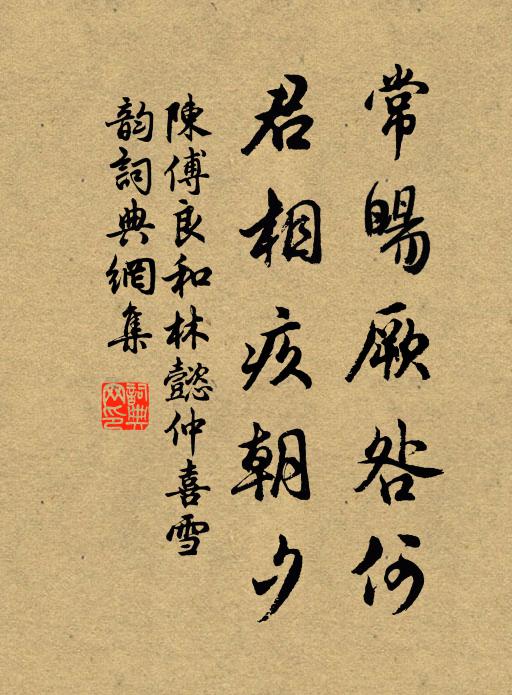 常暘厥咎何
君相疚朝夕
陳傅良和林懿仲喜雪
韵詞典網集
詞典
网印